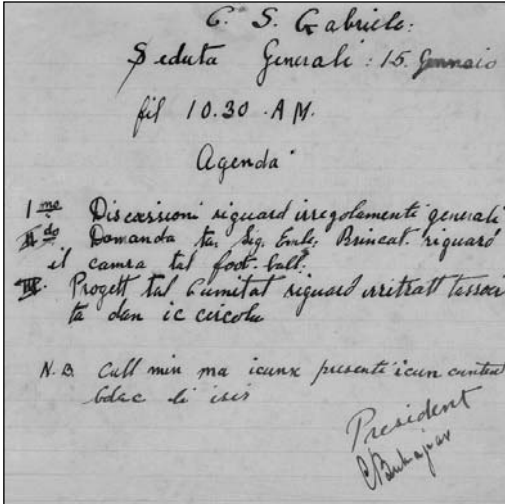 C. S. Gabriele:
Seduta Generali: 15 Gennaio
fil 10.30 A.M.
Agenda
1mo Discussioni riguard irregolamenti generali
II do Domanda ta. Sig. Emle: Brincat. riguard
il camra tal foot-ball:
III. Progett tal Cumitat riguard irritratt tassoci
ta dan ic circolu
N.B. Cull min ma icunx presenti icun cuntent
b'dac li isir
President